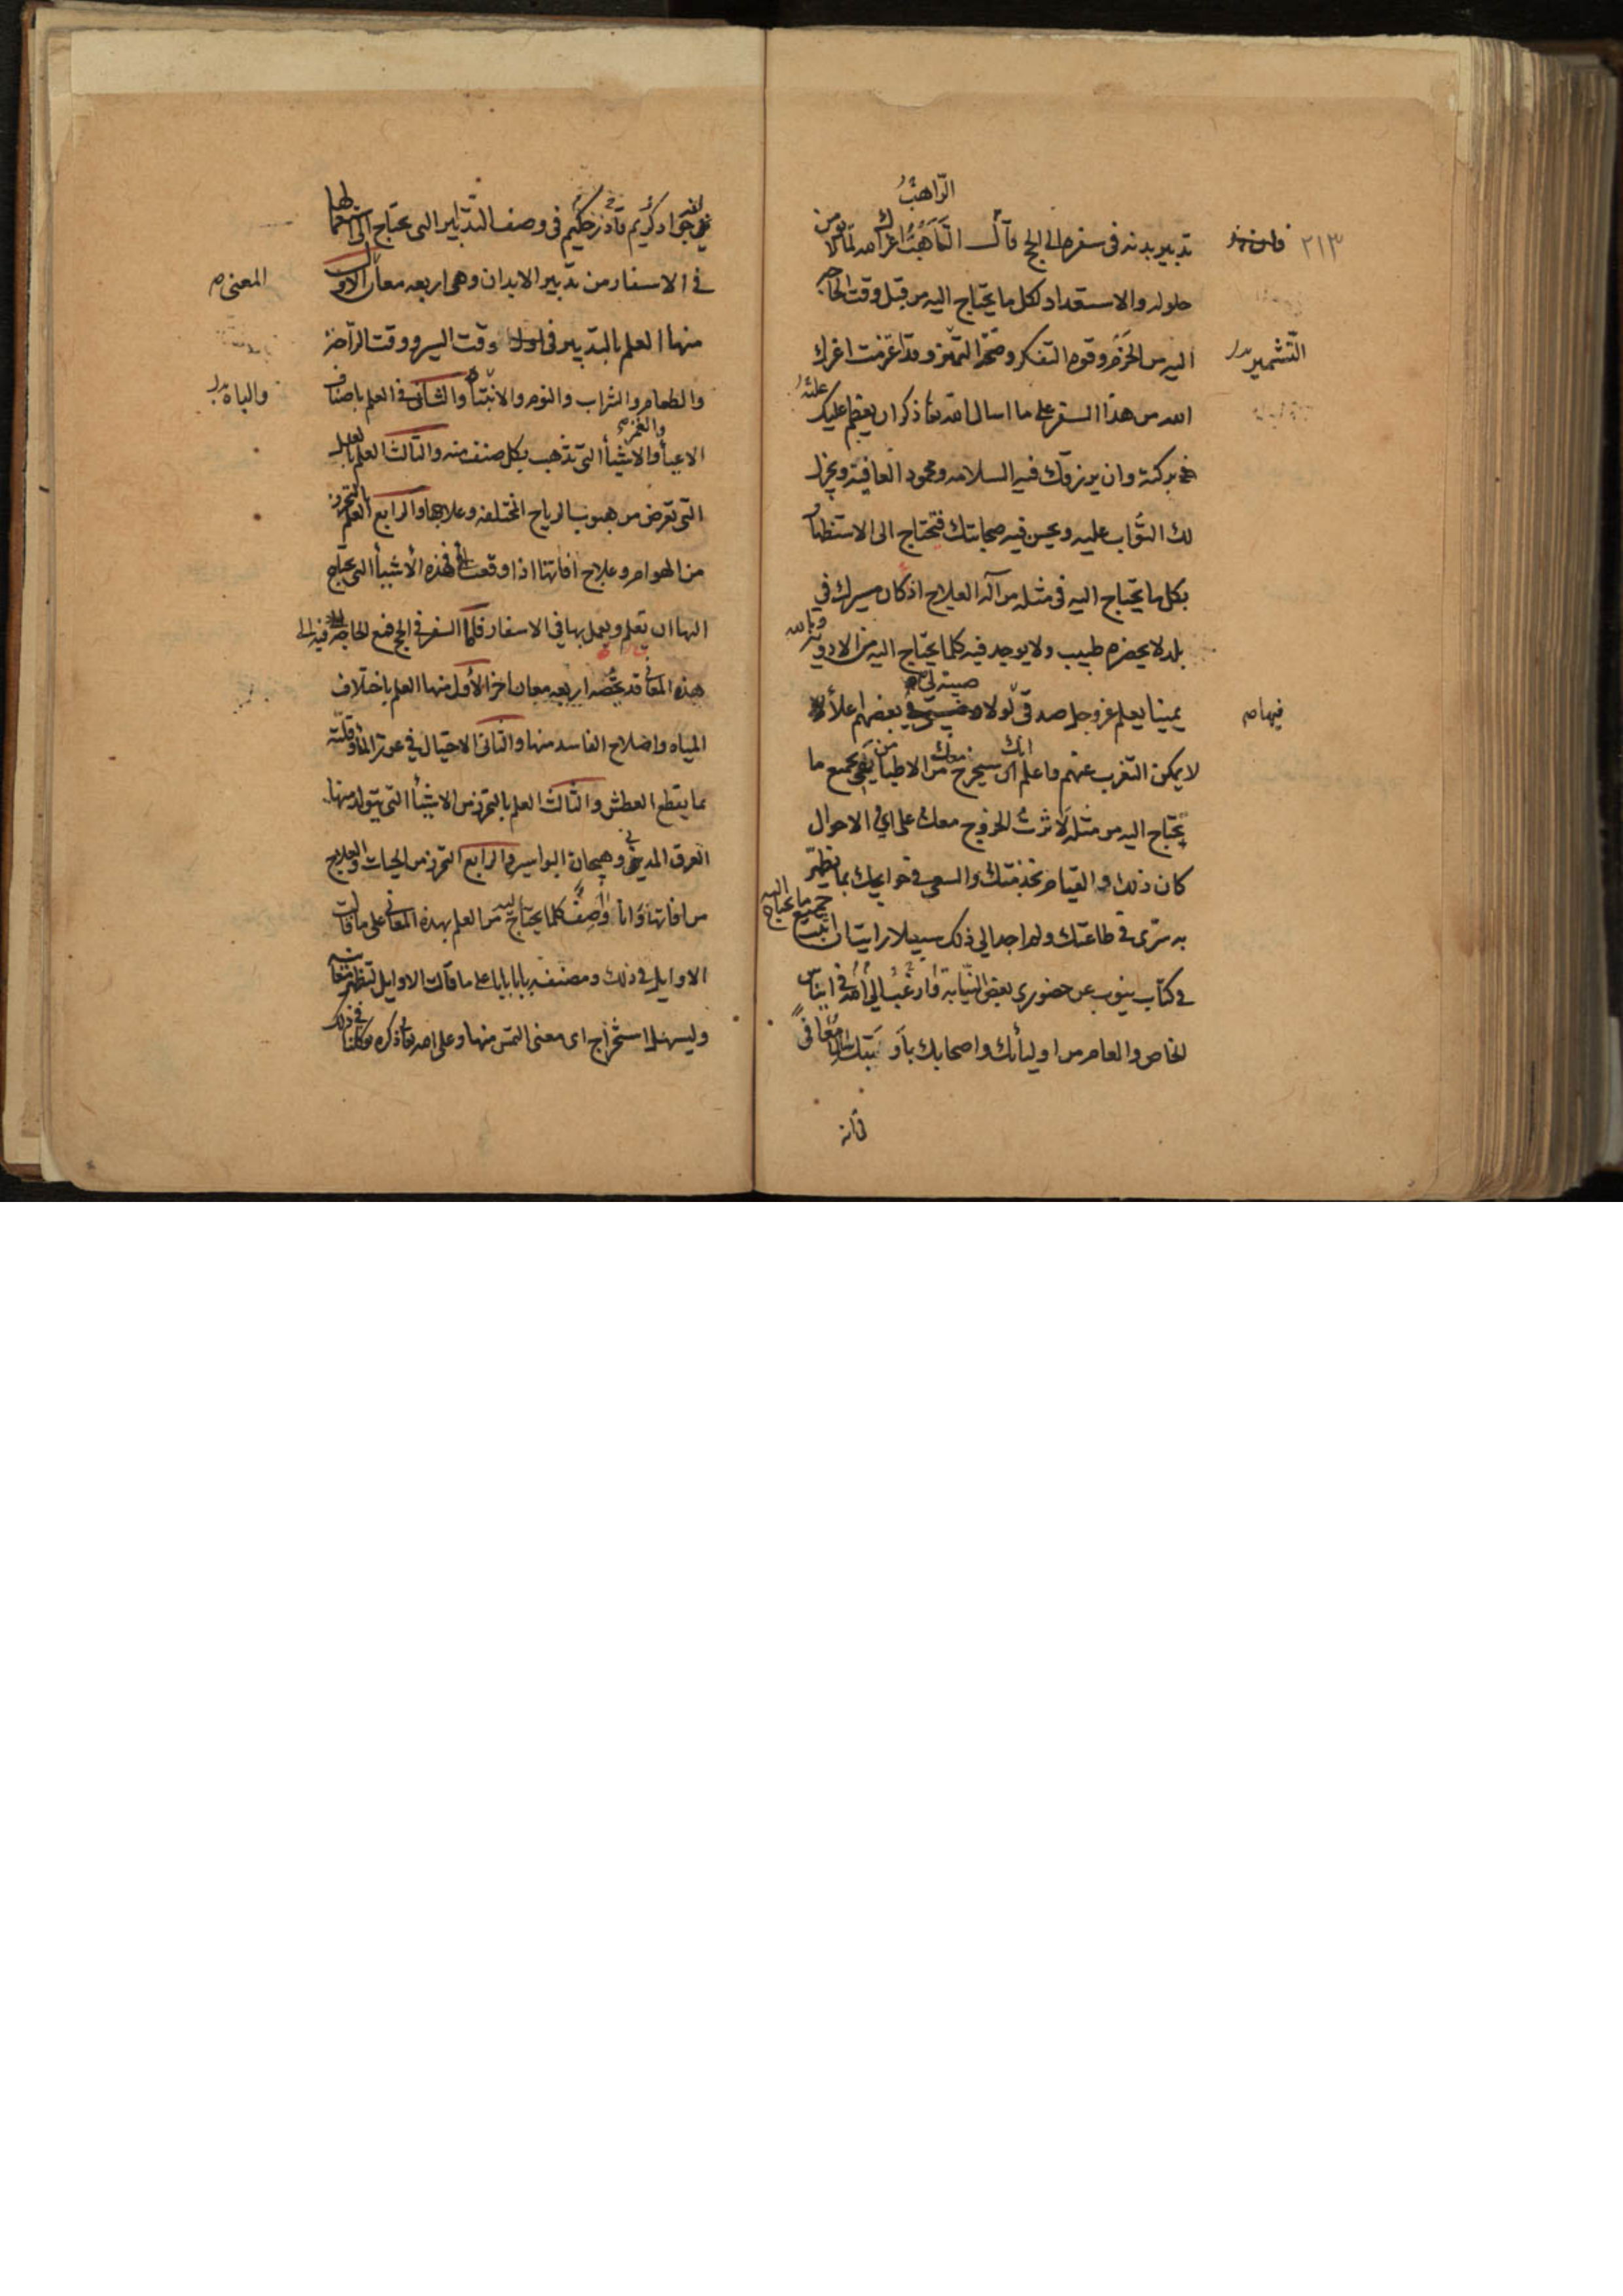 الرّاهبُ
٢١٣
تدبير بدنه في سفره الى الحج قال التَأَهُّبُ اعزك الله لما لا يؤمن
حلوله والاستعداد لكل ما يحتاج اليه من قبل وقت الحاجة
التشمير بدل
اليه من الحزم وقوة التفكر وصحة التميز وقد اعتزمت اعزك
الله من هذا السفر على ما اسال الله تعا ذكره ان يعظم عليك
بركته وان يرزقك فيه السلامه ومحمود العافية ويجزل
لك الثواب عليه ويحسن فيه صحابتك فتحتاج الى الاستظهار
بكل ما يحتاج اليه في مثله من آلة العلاج اذ كان مسيرك في
بلد لا يحضره طبيب ولا يوجد فيه كلما يحتاج اليه من الادوية وبالله
يمينا يعلم عز وجل صدقي لولا صبية لى بعضهم اعلاء
فيها صح
لا يمكن التغرب عنهم واعلم انك سيخرج معك من الاطباء من يفى بجميع ما
يحتاج اليه من مثله لاثرت الخروج معك على اي الاحوال
كان ذلك والقيام بخدمتك والسعى في حوايجك بما يظهر
به سرى في طاعتك ولم اجد الى ذلك سبيلا رايت ان اثبت جميع ما يحتاج اليه
في كتاب ينوب عن حضوري بعض النيابة وارغب الى الله في ايناس
الخاص والعام من اوليائك واصحابك باوبتك سالما معافى
فانه
جواد كريم قادر حكيم في وصف التدابير التي يحتاج الى استعمالها
في الاسفار من تدبير الابدان وهي اربعه معان الاول
المعنى صح
منها العلم بالتدبير في وقت السير ووقت الراحة
والطعام والشراب والنوم والانتباه والثاني في العلم باصناف
والباه بدل
والغمز صح
الاعياء والاشياء التي تذهب بكل صنف منه والثالث العلم بالعلل
التي تعرض من هبوب الرياح المختلفة وعلاجها والرابع العلم بالتحرز
من الهوام وعلاج افاتها اذا وقعت فهذه الاشياء التي يحتاج
اليها ان تعلم ويعمل بها في الاسفار فاما السفر في الحج فمع الحاجة فيه الى
هذه المعاني قد يخصه اربعه معان اخر الاول منها العلم باختلاف
المياه واصلاح الفاسد منها والثاني الاحتيال في عوز الماء وقلته
بما يقطع العطش والثالث العلم بالتحرز من الاشياء التي يتولد منها
العرق المديني وهيجان البواسير والرابع التحرز من الحيات والعلاج
من افاتها وانا واصف كلما يحتاج اليه من العلم بهذه المعاني على ما قالت
الاوايل في ذلك ومصنفه بابا بابا على ما قالت الاوايل لتظهر معانيه
وليسهل استخراج اى معنى التمس منها وعلى الله تعا ذكره توكلنا في ذلك